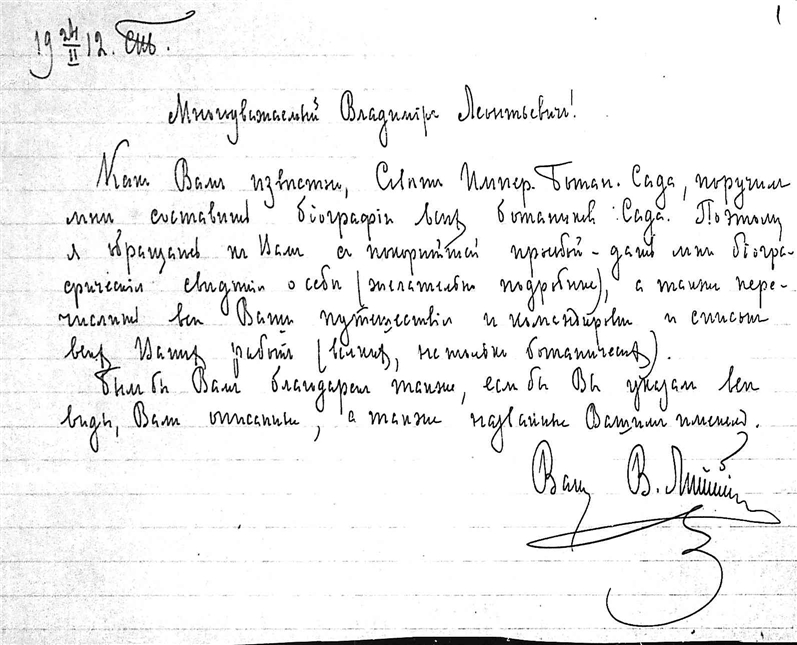 1
19 24/II 12. СПб.
Многоуважаемый Владиміръ Леонтьевичъ!
Какъ Вамъ извѣстно, Совѣтъ Импер. Ботан. Сада, поручилъ
мнѣ составить біографіи всѣхъ ботаниковъ Сада. Поэтому
я обращаюсь къ Вамъ съ покорнѣйшей просьбой - дать мнѣ біогра-
фическія свѣдѣнія о себѣ (желательно подробнѣе), а также пере-
числить всѣ Ваши путешествія и командировки и списокъ
всѣхъ Вашихъ работъ (всякихъ, не только ботаническихъ).
Былъ бы Вамъ благодаренъ также, если бы Вы указали всѣ
виды, Вами описанные, а также названные Вашимъ именемъ.
Вашъ В. Липскій